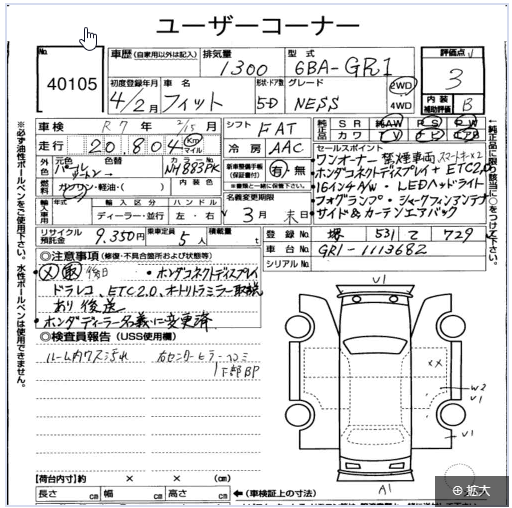 ユーザーコーナー
No.
40105
車歴 (自家用以外は記入)
排気量
1300
型式
6BA-GR1
評価点
3
初度登録年月
4/2月
車名
フィット
形状・ドア数
5D
グレード
NESS
2WD
4WD
内装
補助評価
B
車検
R7年 2/15月
シフト
FAT
純正品
SR AW PS PW
カワ TV ナビ エアB
走行
20,804
Km
マイル
冷房
AAC
セールスポイント
・ワンオーナー 禁煙車両 スマートキー×2
・ホンダコネクトディスプレイ+ETC2.0
・16インチAW・LEDヘッドライト
・フォグランプ・シャークフィンアンテナ
・サイド&カーテンエアバッグ
外色
元色
色替
カラーNo.
NH883PK
新車整備手帳
(保証書付)
有・無
※書類と一緒に保管下さい。
燃料
ガソリン・軽油・( )
内装色
名義変更期限
3月末日
輸入車用
年式
輸入区分
ハンドル
ディーラー・並行
左・右
リサイクル
預託金
9,350円
乗車定員
5人
積載量
t
登録No
堺 531 て 729
車台No.
GR1-1113682
シリアルNo.
◎注意事項(修復・不具合箇所および状態等)
・ホンダコネクトディスプレイ
ドラレコ、ETC2.0、オートリトラミラー取説
あり後送
・ホンダディーラー名義に変更済
◎検査員報告(USS使用欄)
ルーム内ワス汚れ
右センターピラーヘコミ
下部BP
U1
XX
W2
U1
U1
A1
【荷台内寸】約 × × (cm)
長さ cm 幅 cm 高さ cm
←(車検証上の寸法)
※必ず油性ボールペンをご使用下さい。水性ボールペンは使用できません。
↑純正品に限り該当に○をつけて下さい。
拡大